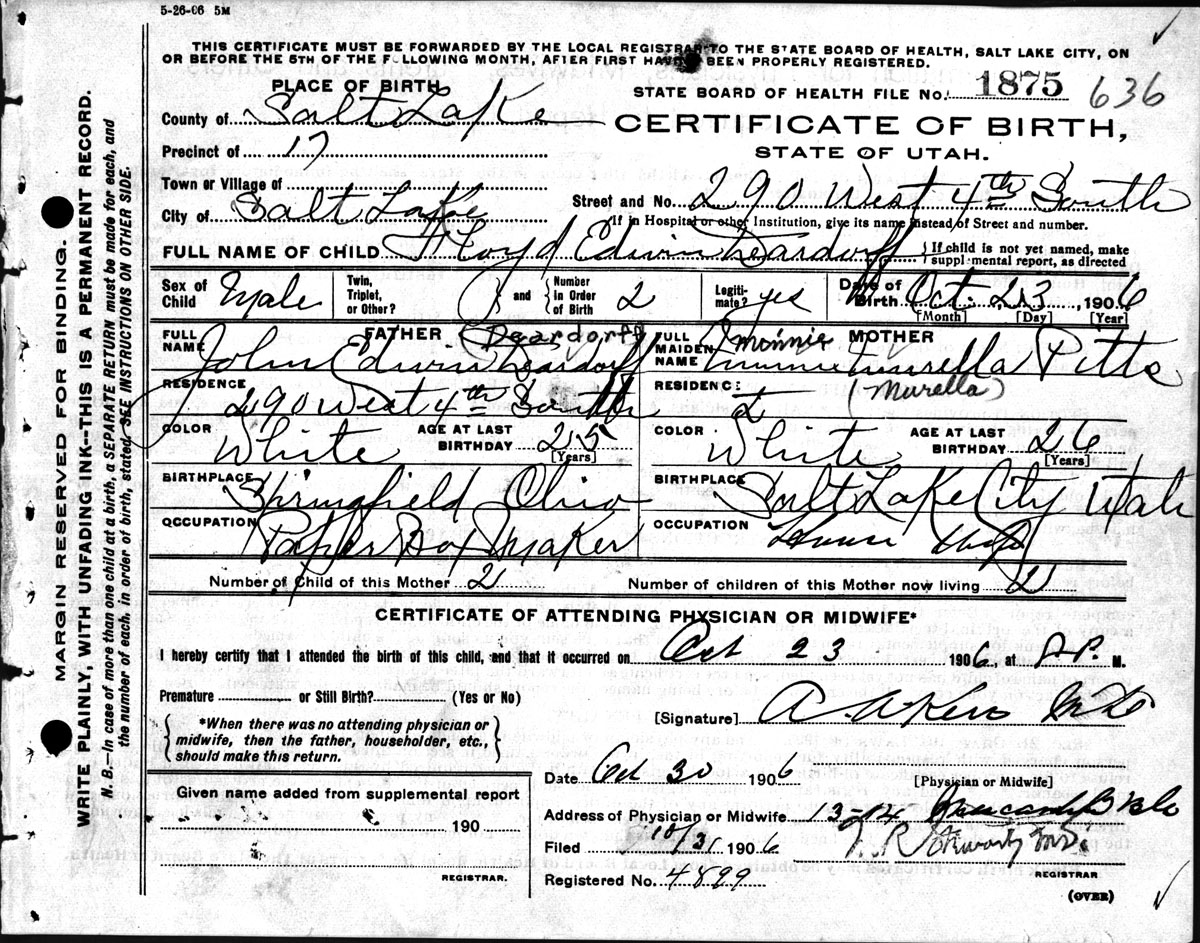 5-26-06 5M
THIS CERTIFICATE MUST BE FORWARDED BY THE LOCAL REGISTRAR TO THE STATE BOARD OF HEALTH, SALT LAKE CITY, ON
OR BEFORE THE 5TH OF THE FOLLOWING MONTH, AFTER FIRST HAVING BEEN PROPERLY REGISTERED.
PLACE OF BIRTH
STATE BOARD OF HEALTH FILE No. 1875 636
County of Salt Lake
CERTIFICATE OF BIRTH,
Precinct of 17
STATE OF UTAH.
Town or Village of
Street and No. 290 West 4th South
City of Salt Lake
(If in Hospital or other Institution, give its name instead of Street and number.
FULL NAME OF CHILD Floyd Edwin Deardorff
{ If child is not yet named, make
supplemental report, as directed
Sex of Child Male
Twin, Triplet, or Other?
and
Number in Order of Birth 2
Legitimate? yes
Date of Birth Oct. 23, 1906
[Month] [Day] [Year]
FATHER
Deardorff
FULL NAME John Edwin Deardorff
MOTHER
Minnie
FULL MAIDEN NAME Minnie Murella Pitts
(Murella)
RESIDENCE 290 West 4th South
RESIDENCE
COLOR White
AGE AT LAST BIRTHDAY 25
[Years]
COLOR White
AGE AT LAST BIRTHDAY 26
[Years]
BIRTHPLACE Springfield Ohio
BIRTHPLACE Salt Lake City Utah
OCCUPATION Paper Box Maker
OCCUPATION
Number of Child of this Mother 2
Number of children of this Mother now living 2
CERTIFICATE OF ATTENDING PHYSICIAN OR MIDWIFE*
I hereby certify that I attended the birth of this child, and that it occurred on Oct 23 1906, at P. M.
Premature or Still Birth? (Yes or No)
*When there was no attending physician or
midwife, then the father, householder, etc.,
should make this return.
[Signature]
[Physician or Midwife]
Date Oct 30 1906
Address of Physician or Midwife 13-14
Filed 10/31 1906
REGISTRAR
Registered No. 4899
(OVER)
Given name added from supplemental report
190
REGISTRAR.
MARGIN RESERVED FOR BINDING.
WRITE PLAINLY, WITH UNFADING INK--THIS IS A PERMANENT RECORD.
N. B.—In case of more than one child at a birth, a SEPARATE RETURN must be made for each, and
the number of each, in order of birth, stated. SEE INSTRUCTIONS ON OTHER SIDE.